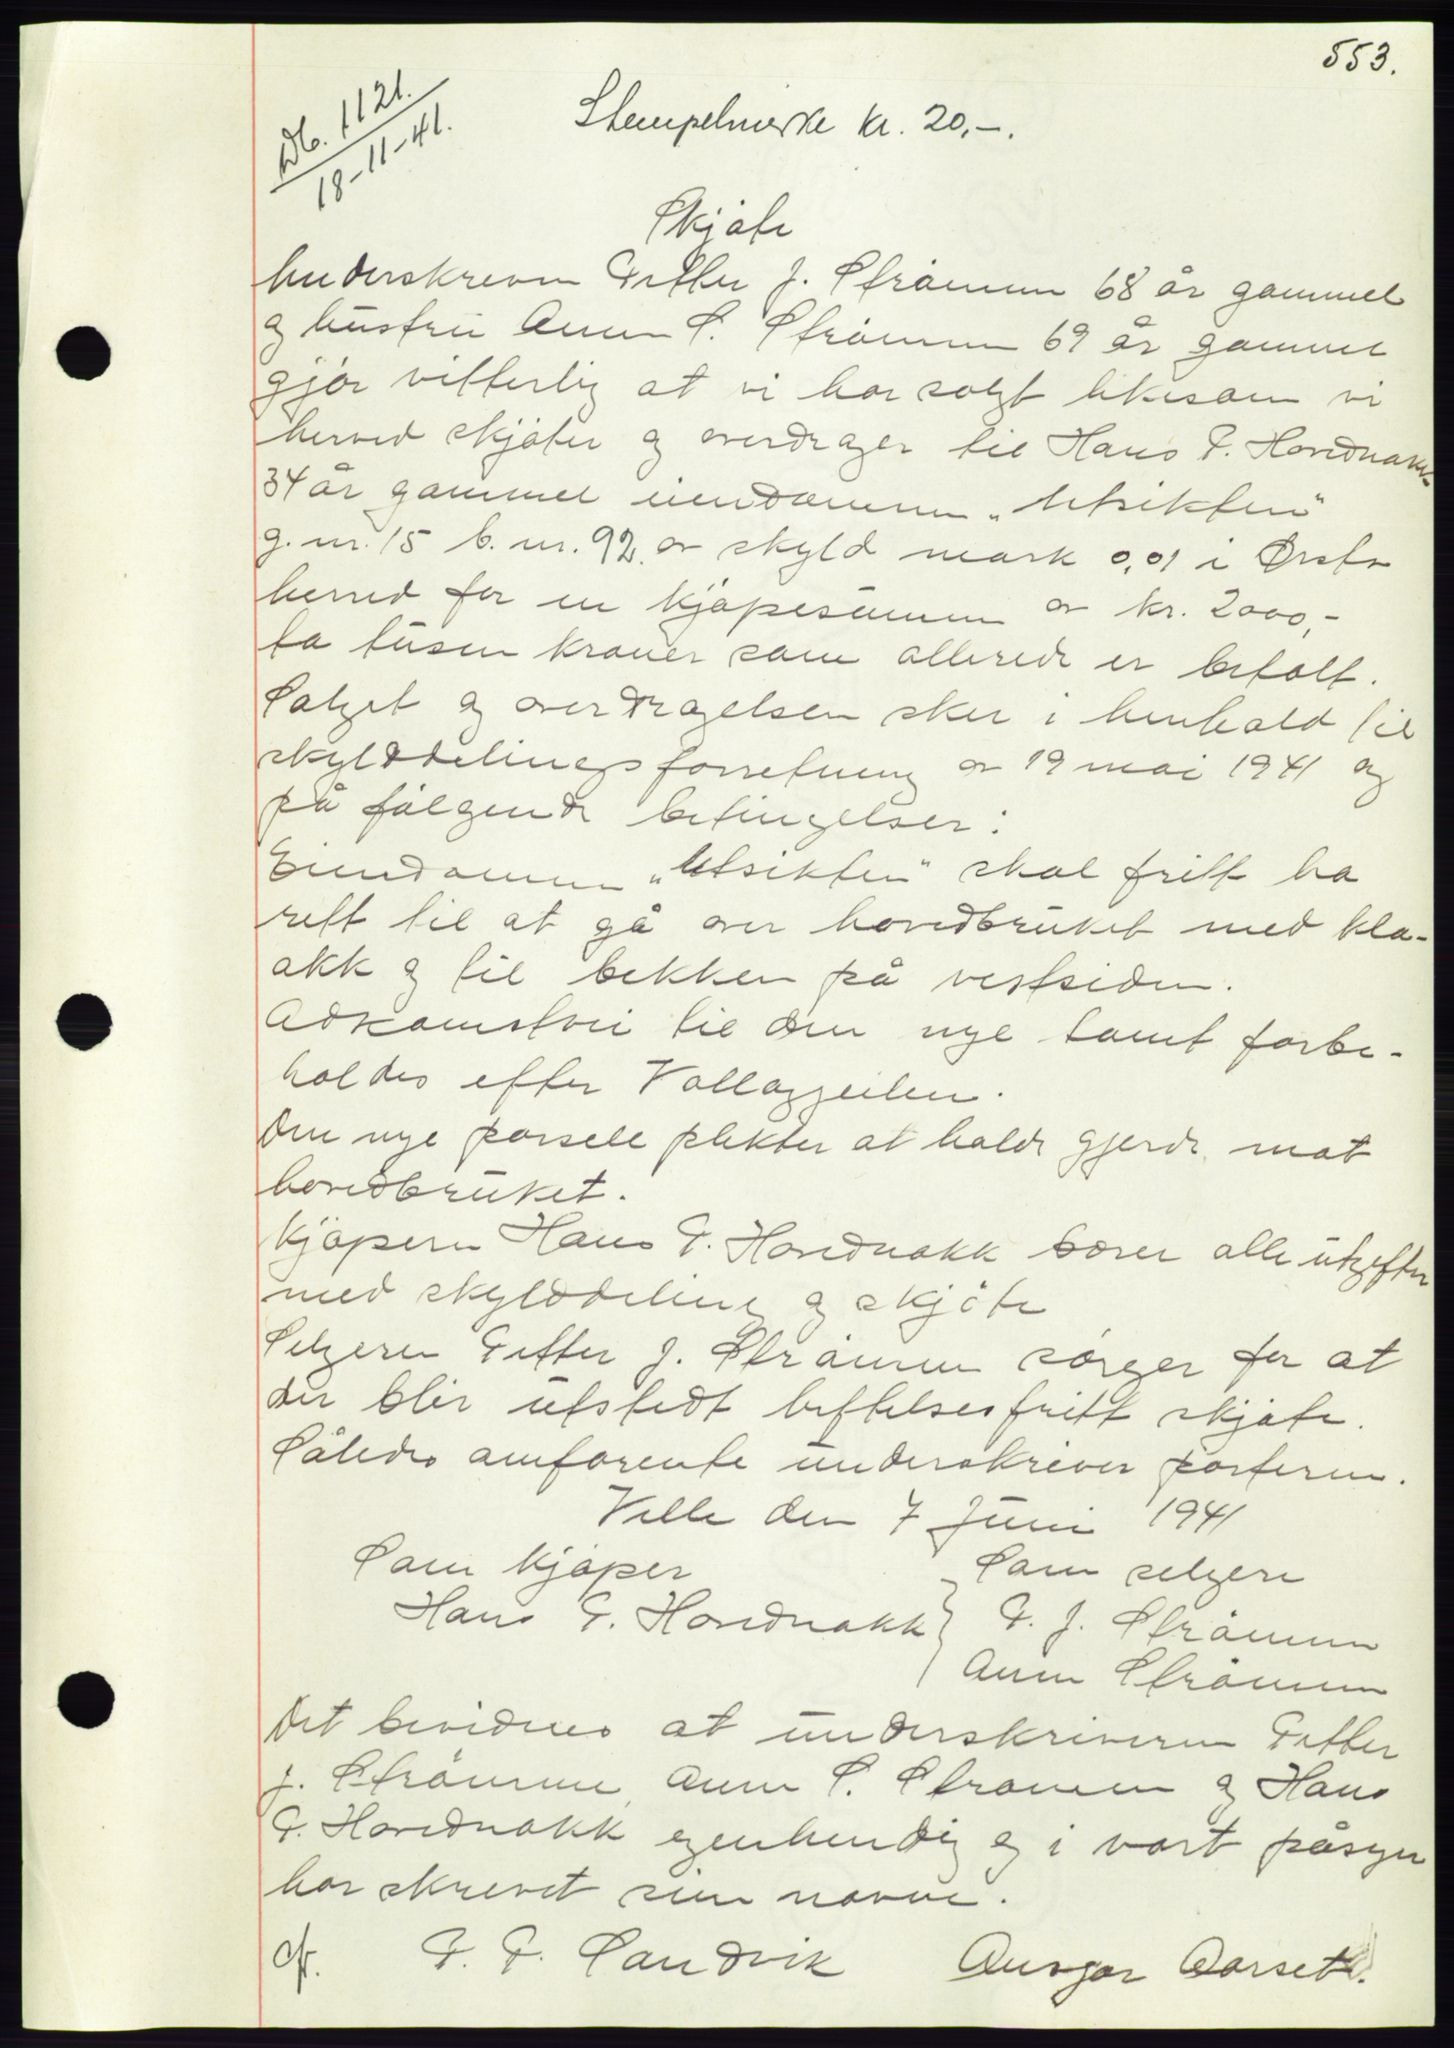 553.
Db. 1121.
18-11-41.
Stempelmerke kr. 20,-.
Skjøte
Underskreven Petter J. Strømmen 68 år gammel
og hustru Anne S. Strømmen 69 år gammel
gjør vitterlig at vi har solgt likesom vi
herved skjøter og overdrager til Hans P. Hovdnakk
34 år gammel eiendommen "Utsikten"
g.nr. 15 b.nr. 92. av skyld mark 0,01 i Ørsta
herred for en kjøpesummen av kr. 2000,-
to tusen kroner som allerede er betalt.
Salget og overdragelsen sker i henhold til
skylddelingsforretning av 19 mai 1941 og
på følgende betingelser:
Eiendommen "Utsikten" skal fritt ha
rett til at gå over hovedbruket med klo-
akk og til bekken på vestsiden.
Adkomstvei til den nye tomt forbe-
holdes efter Vallaggeilen.
Den nye parsell plikter at holde gjerde mot
hovedbruket.
Kjøperen Hans P. Hovdnakk bærer alle utgifter
med skylddeling og skjøte
Selgeren Petter J. Strømmen sørger for at
der blir utstedt heftelsesfritt skjøte.
Således omforente underskriver parterne.
Velle den 7 Juni 1941
Som kjøper Som selgere
Hans P. Hovdnakk P. J. Strømmen
Anne Strømmen
Det bevidnes at underskriverne Petter
J. Strømme, Anne S. Strømmen og Hans
P. Hovdnakk egenhendig og i vort påsyn
har skrevet sine navne.
P. P. Sandvik Ansgar Aarset.